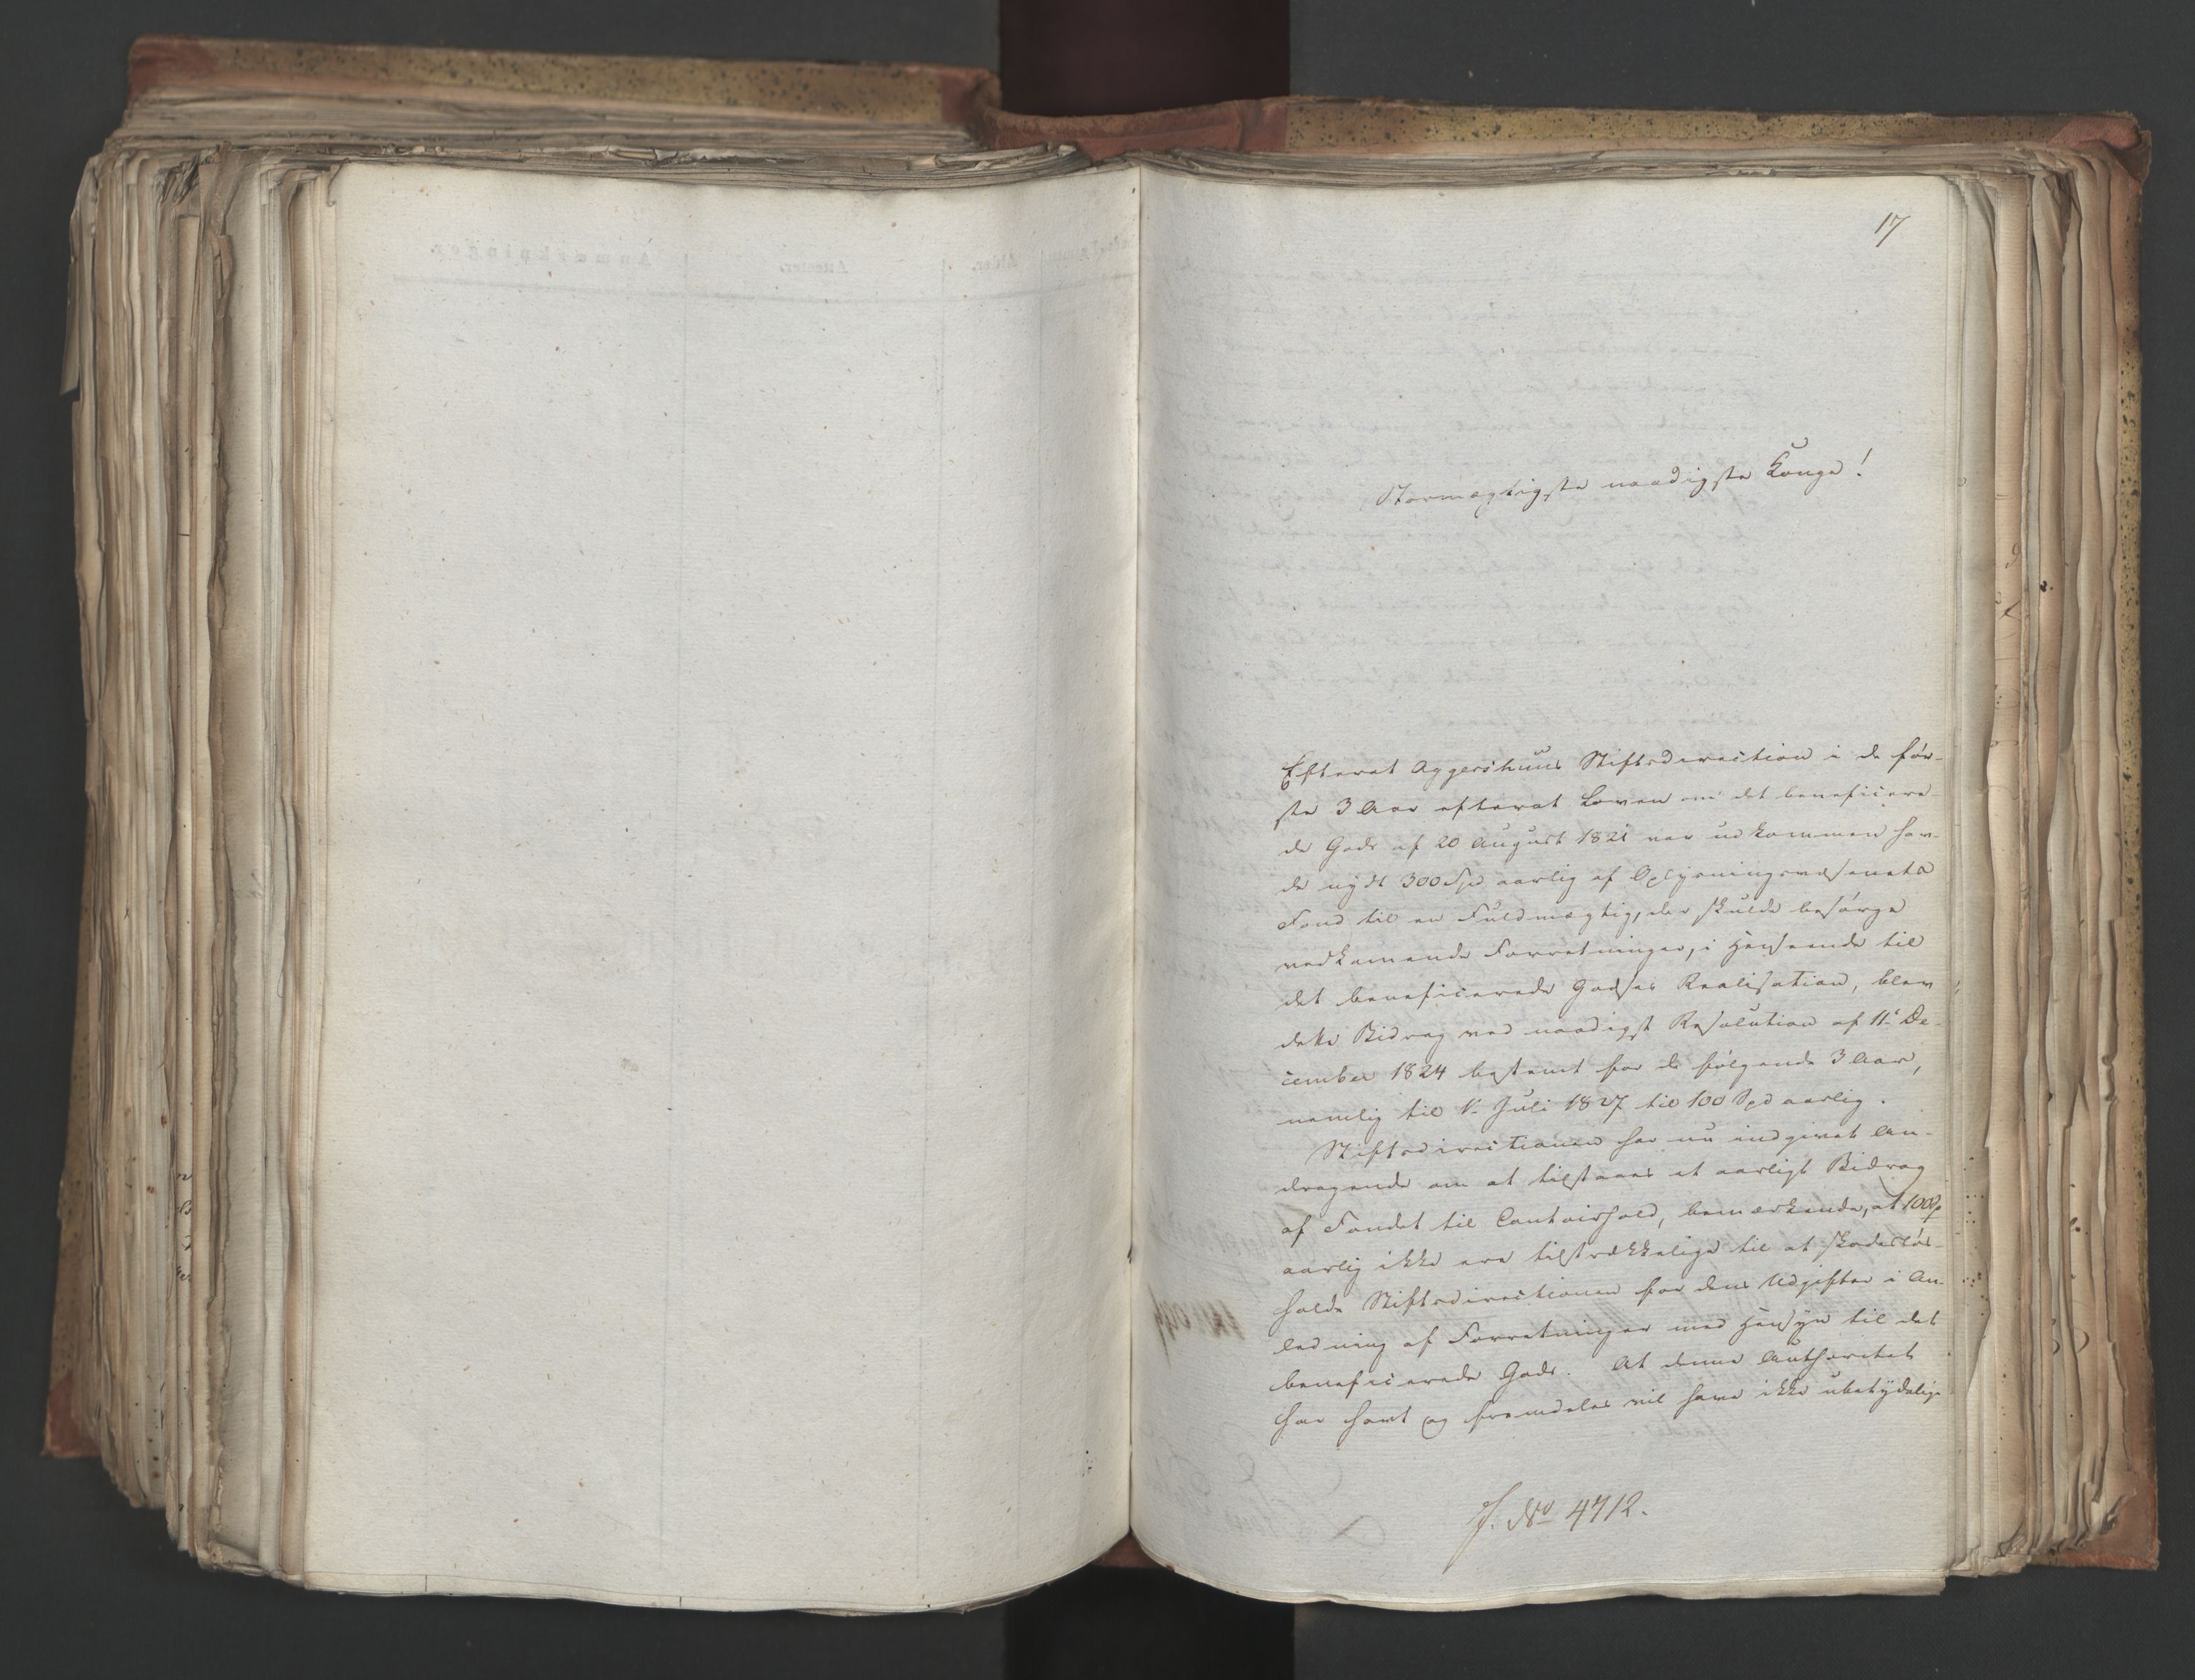 17
Stormægtigste naadigste Konge!
Efterat Aggershuus Stiftsdirection i de før-
ste 3 Aar efterat Loven om det beneficere-
de Gods af 20 August 1821 var udkommen hav-
de nydt 300 Spd aarlig af Oplysningsvæsenets
Fond til en Fuldmægtig, der skulde besørge
vedkommende Forretninger, i Henseende til
det beneficerede Godses Realisation, blev
dette Bidrag ved naadigst Resolution af 11te De-
cember 1824 bestemt for de følgende 3 Aar,
nemlig til 1. Juli 1827 til 100 Spd aarlig.
Stiftsdirectionen har nu indgivet An-
dragende om at tilstaaes et aarligt Bidrag
af Fondet til Contoirhold, bemærkende, at 100 Sp
aarlig ikke ere tilstrækkelige til at skadesløs-
holde Stiftsdirectionen for dens Udgifter i An-
ledning af Forretninger med Hensyn til det
beneficerede Gods. At denne Authoritet
har havt og fremdeles vil have ikke ubetydelige
J. No 4712.